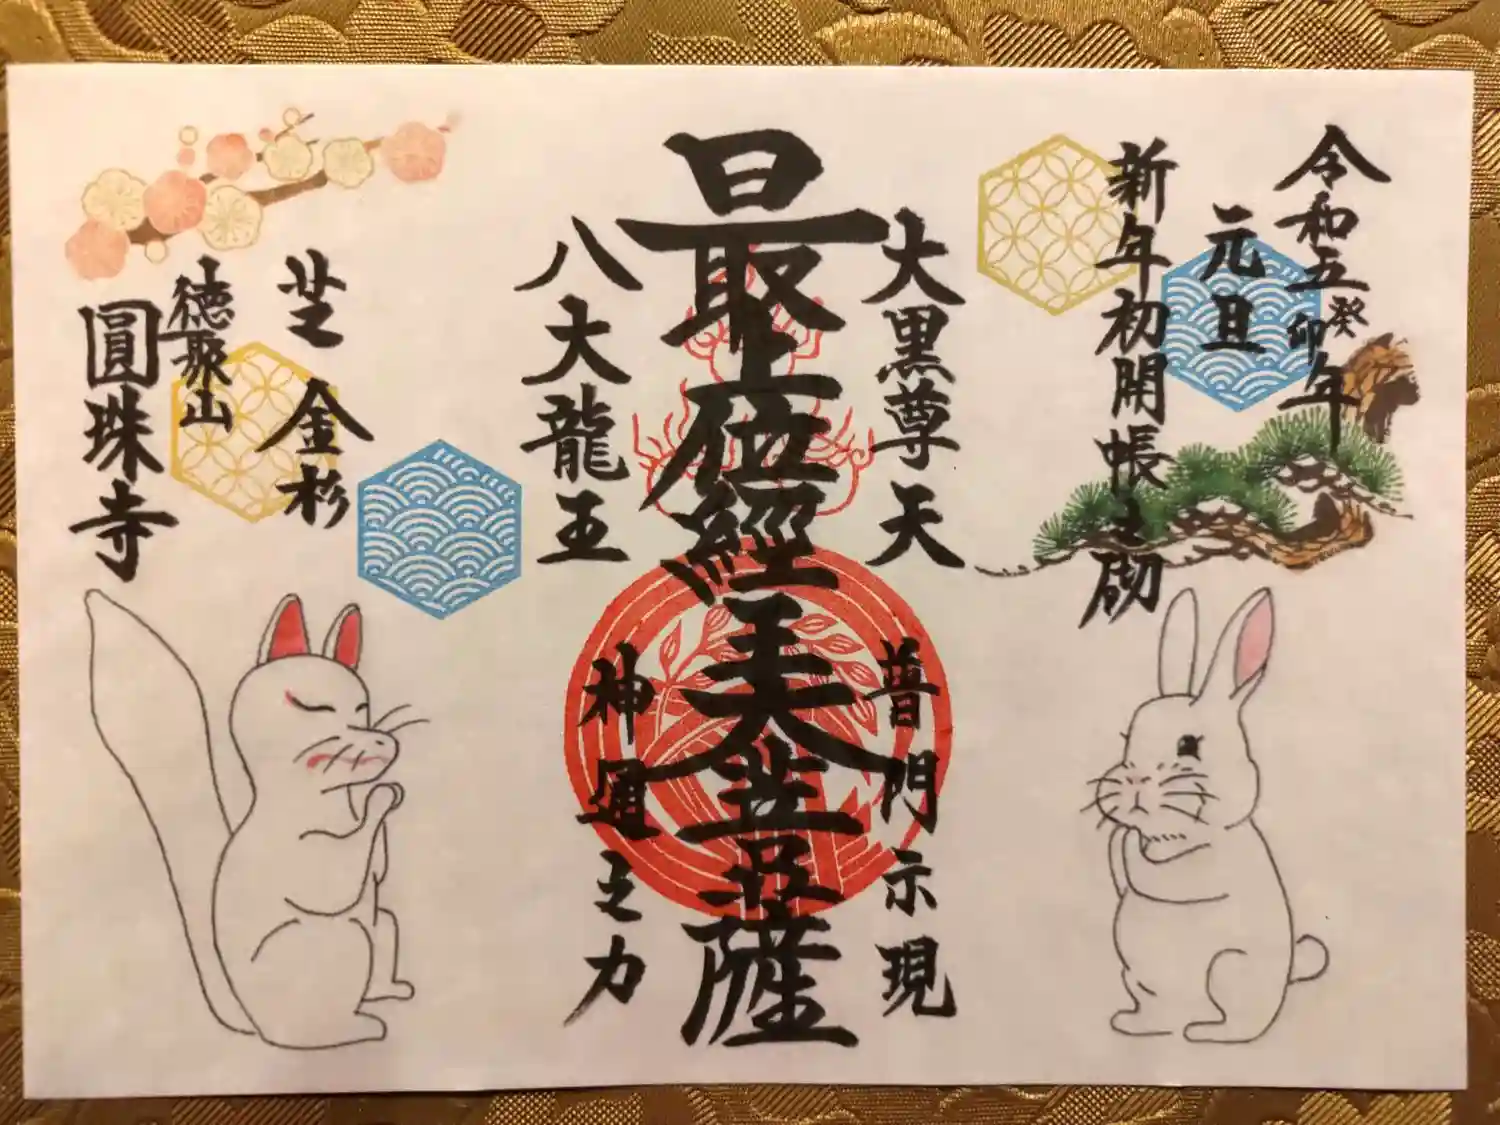 令和五癸卯年
元旦
新年初開帳之砌
大黒尊天
普門示現
最上位經王大菩薩
八大龍王
神通之力
芝 金杉
徳聚山
圓珠寺